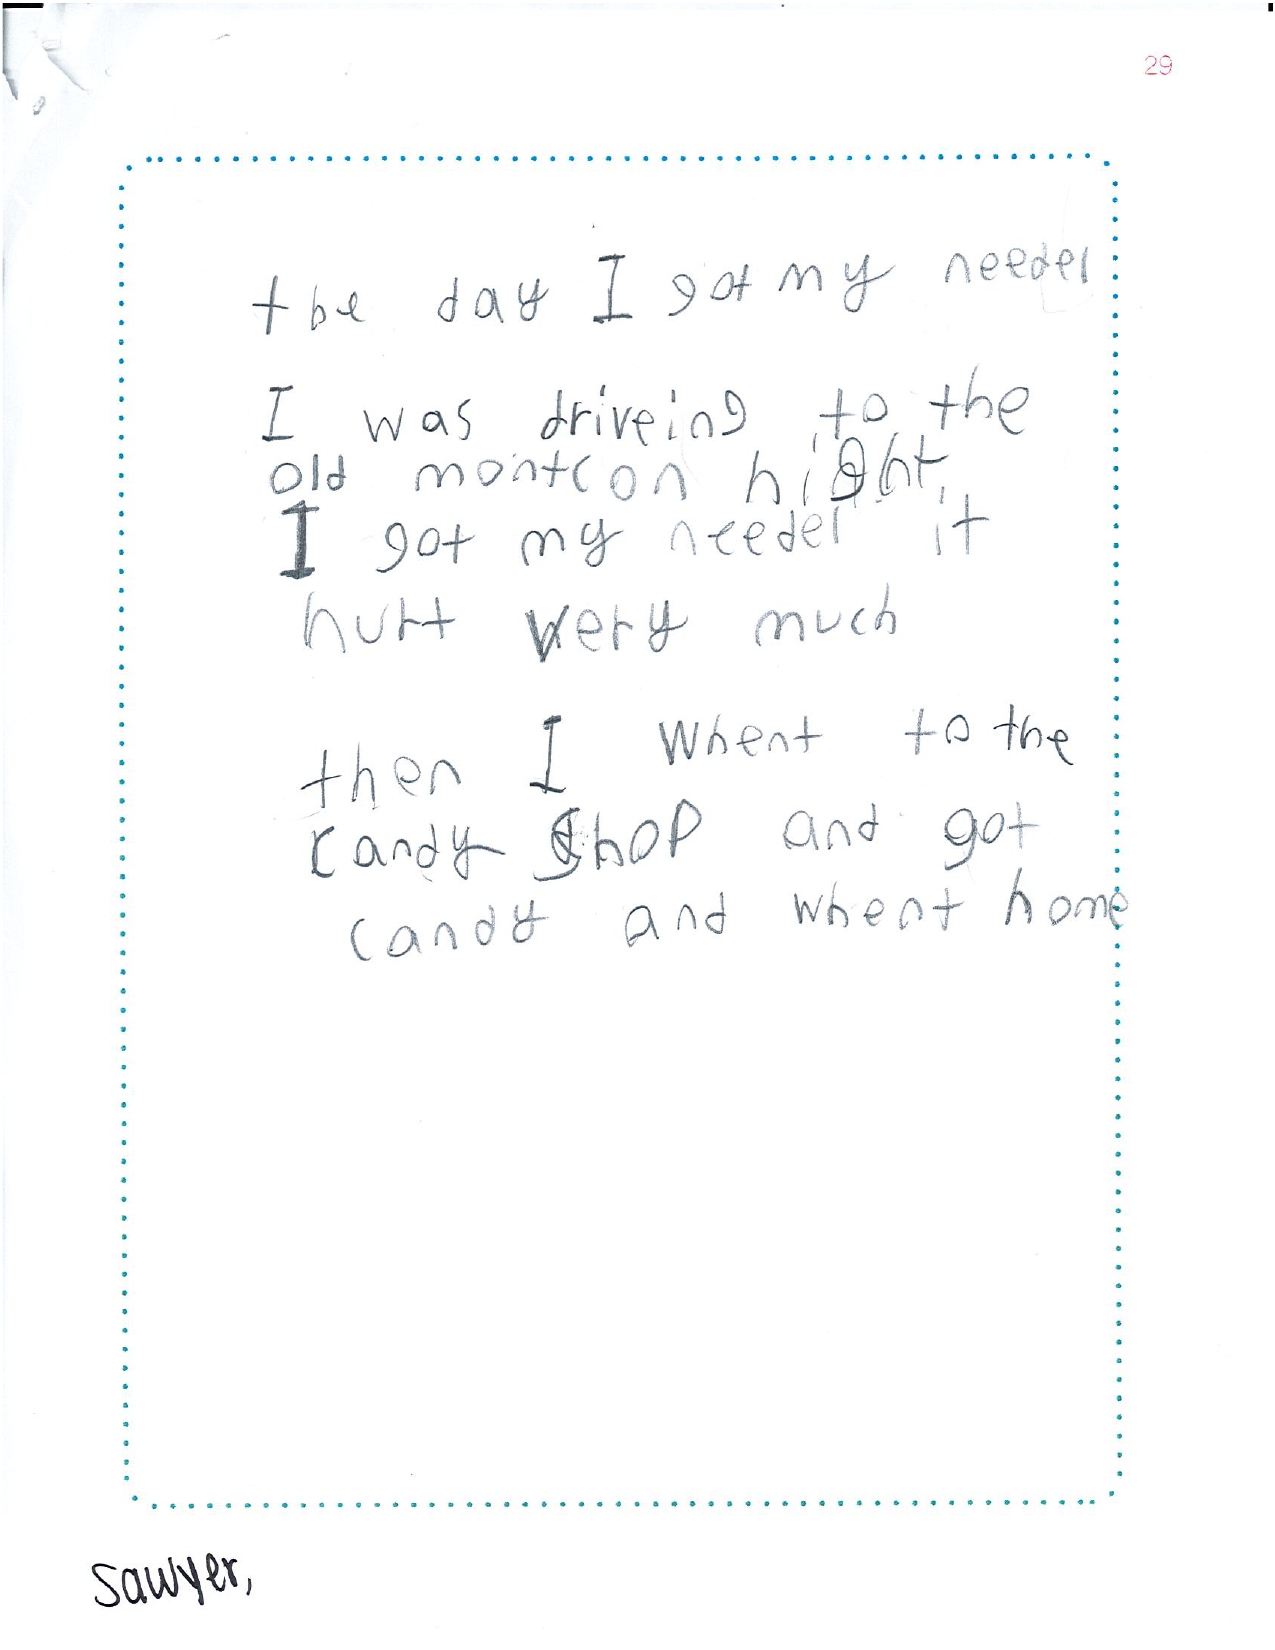 29
the day I got my needel
I was driveing to the
old montcon hight.
I got my needel it
hurt very much
then I whent to the
candy shop and got
candy and whent home
Sawyer,